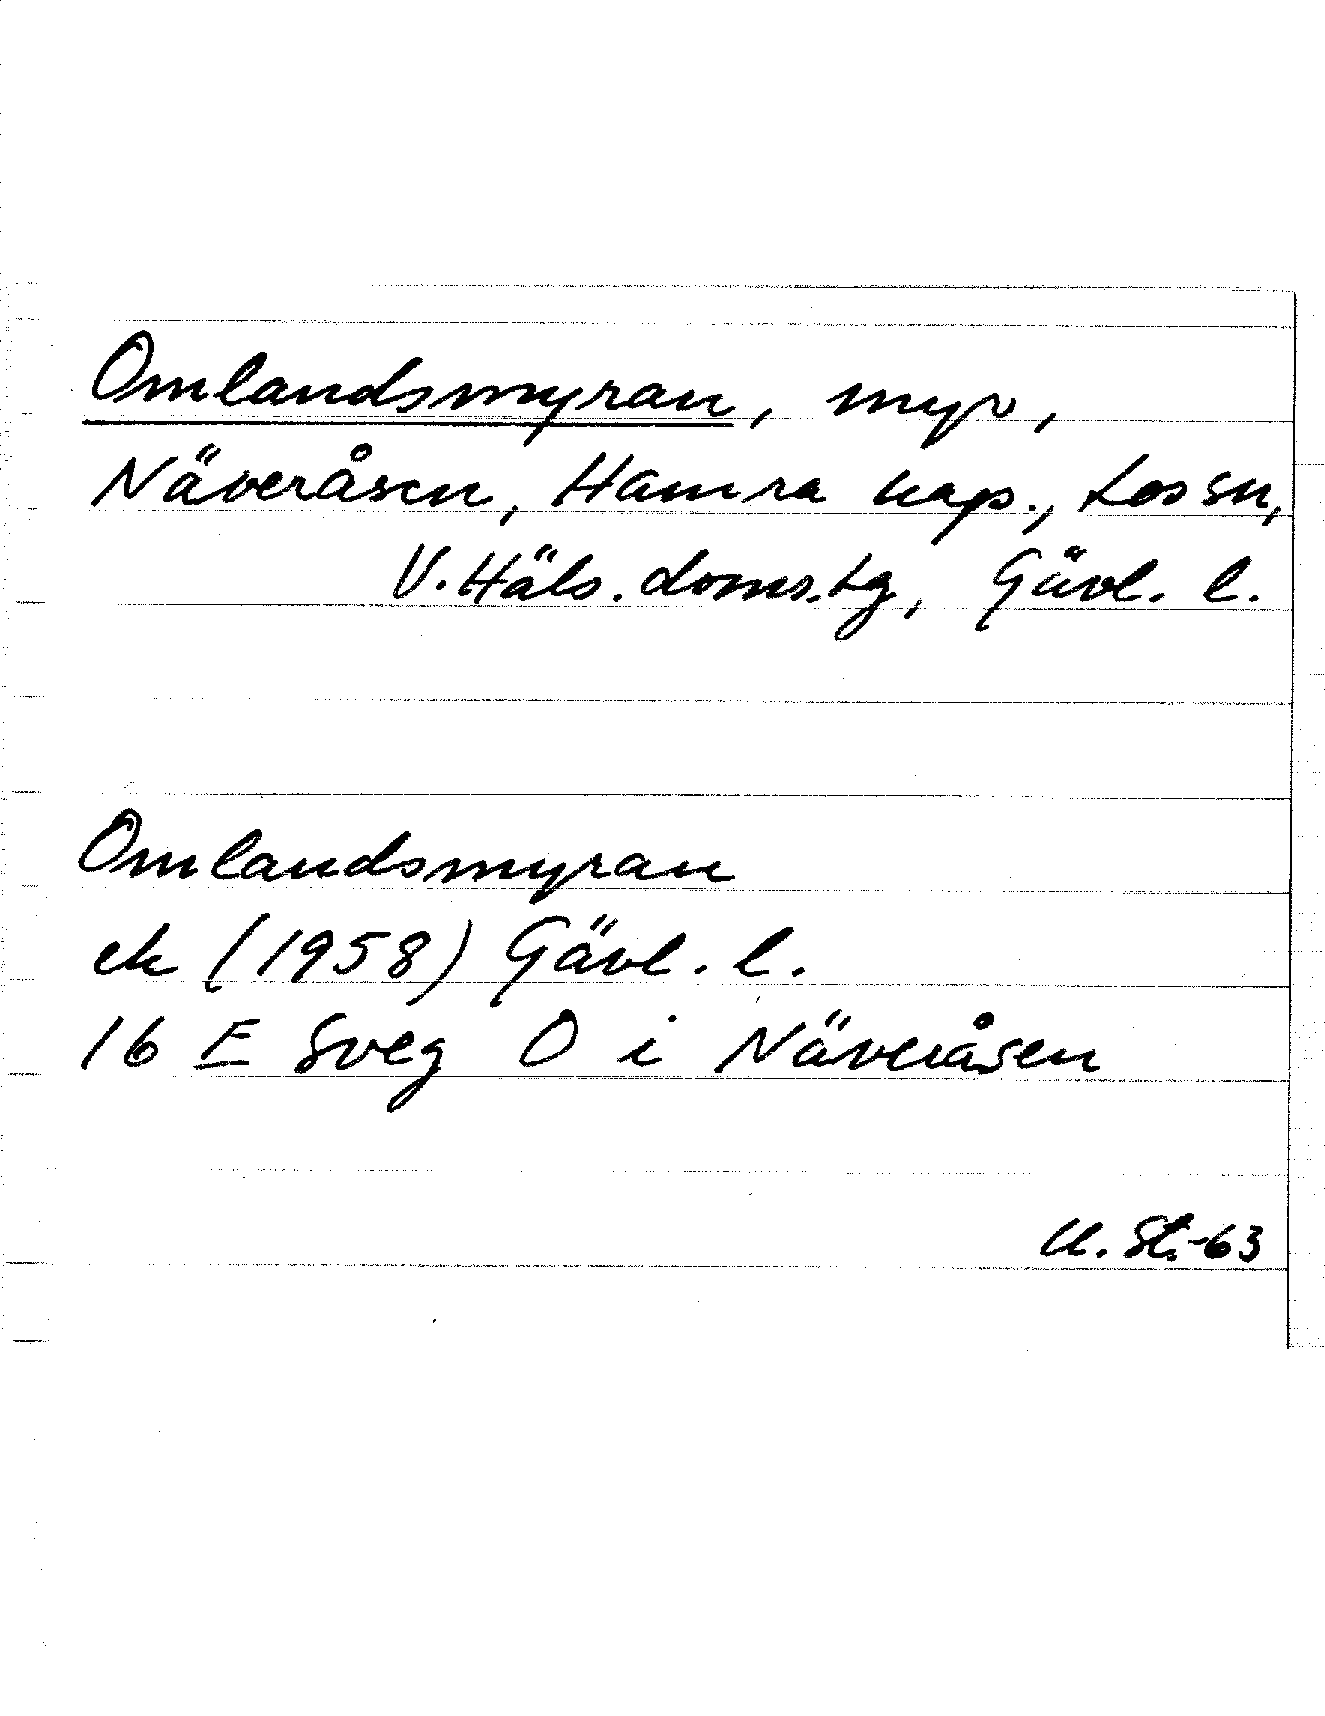 Omlandsmyran, myr,
Näveråsen, Hamra kap., Los sn,
V. Häls. doms.tg, Gävl. l.
Omlandsmyran
ek (1958) Gävl. l.
16 E Sveg O i Näveråsen
U. St.-63